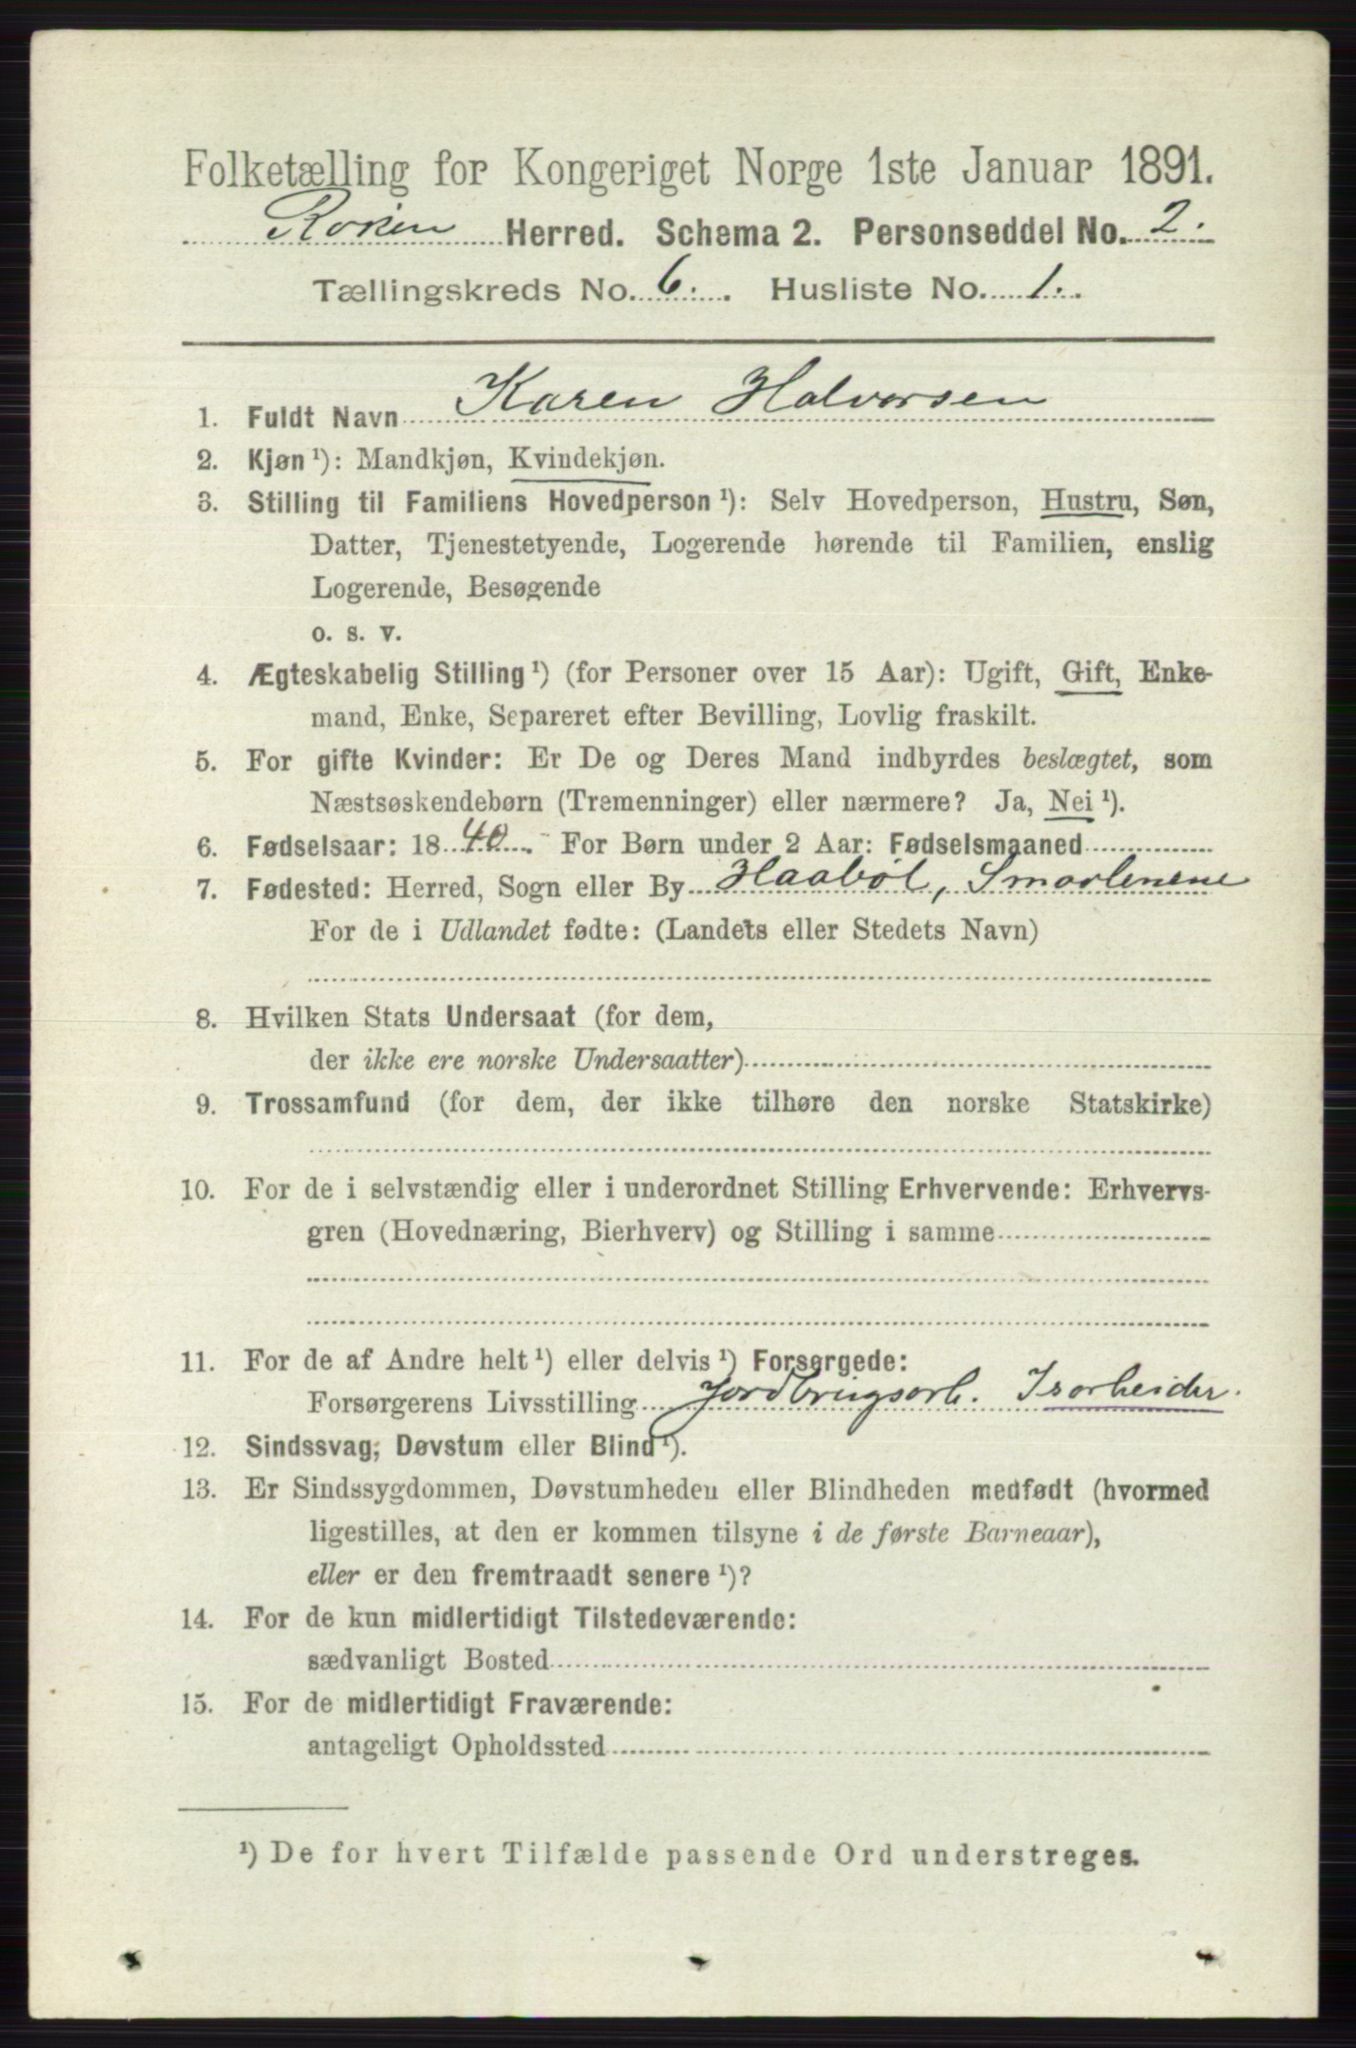 Folketælling for Kongeriget Norge 1ste Januar 1891.
Röken Herred. Schema 2. Personseddel No. 2.
Tællingskreds No. 6. Husliste No. 1.
1. Fuldt Navn Karen Halvorsen
2. Kjøn ¹): Mandkjøn, Kvindekjøn.
3. Stilling til Familiens Hovedperson ¹): Selv Hovedperson, Hustru, Søn,
Datter, Tjenestetyende, Logerende hørende til Familien, enslig
Logerende, Besøgende
o. s. v.
4. Ægteskabelig Stilling ¹) (for Personer over 15 Aar): Ugift, Gift, Enke-
mand, Enke, Separeret efter Bevilling, Lovlig fraskilt.
5. For gifte Kvinder: Er De og Deres Mand indbyrdes beslægtet, som
Næstsøskendebørn (Tremenninger) eller nærmere? Ja, Nei ¹).
6. Fødselsaar: 1840. For Børn under 2 Aar: Fødselsmaaned
7. Fødested: Herred, Sogn eller By Haaböl, Smaalenene
For de i Udlandet fødte: (Landets eller Stedets Navn)
8. Hvilken Stats Undersaat (for dem,
der ikke ere norske Undersaatter)
9. Trossamfund (for dem, der ikke tilhøre den norske Statskirke)
10. For de i selvstændig eller i underordnet Stilling Erhvervende: Erhvervs-
gren (Hovednæring, Bierhverv) og Stilling i samme
11. For de af Andre helt ¹) eller delvis ¹) Forsørgede:
Forsørgerens Livsstilling Jordbrugsarb. Isarbeider.
12. Sindssvag, Døvstum eller Blind ¹).
13. Er Sindssygdommen, Døvstumheden eller Blindheden medfødt (hvormed
ligestilles, at den er kommen tilsyne i de første Barneaar),
eller er den fremtraadt senere ¹)?
14. For de kun midlertidigt Tilstedeværende:
sædvanligt Bosted
15. For de midlertidigt Fraværende:
antageligt Opholdssted
¹) De for hvert Tilfælde passende Ord understreges.